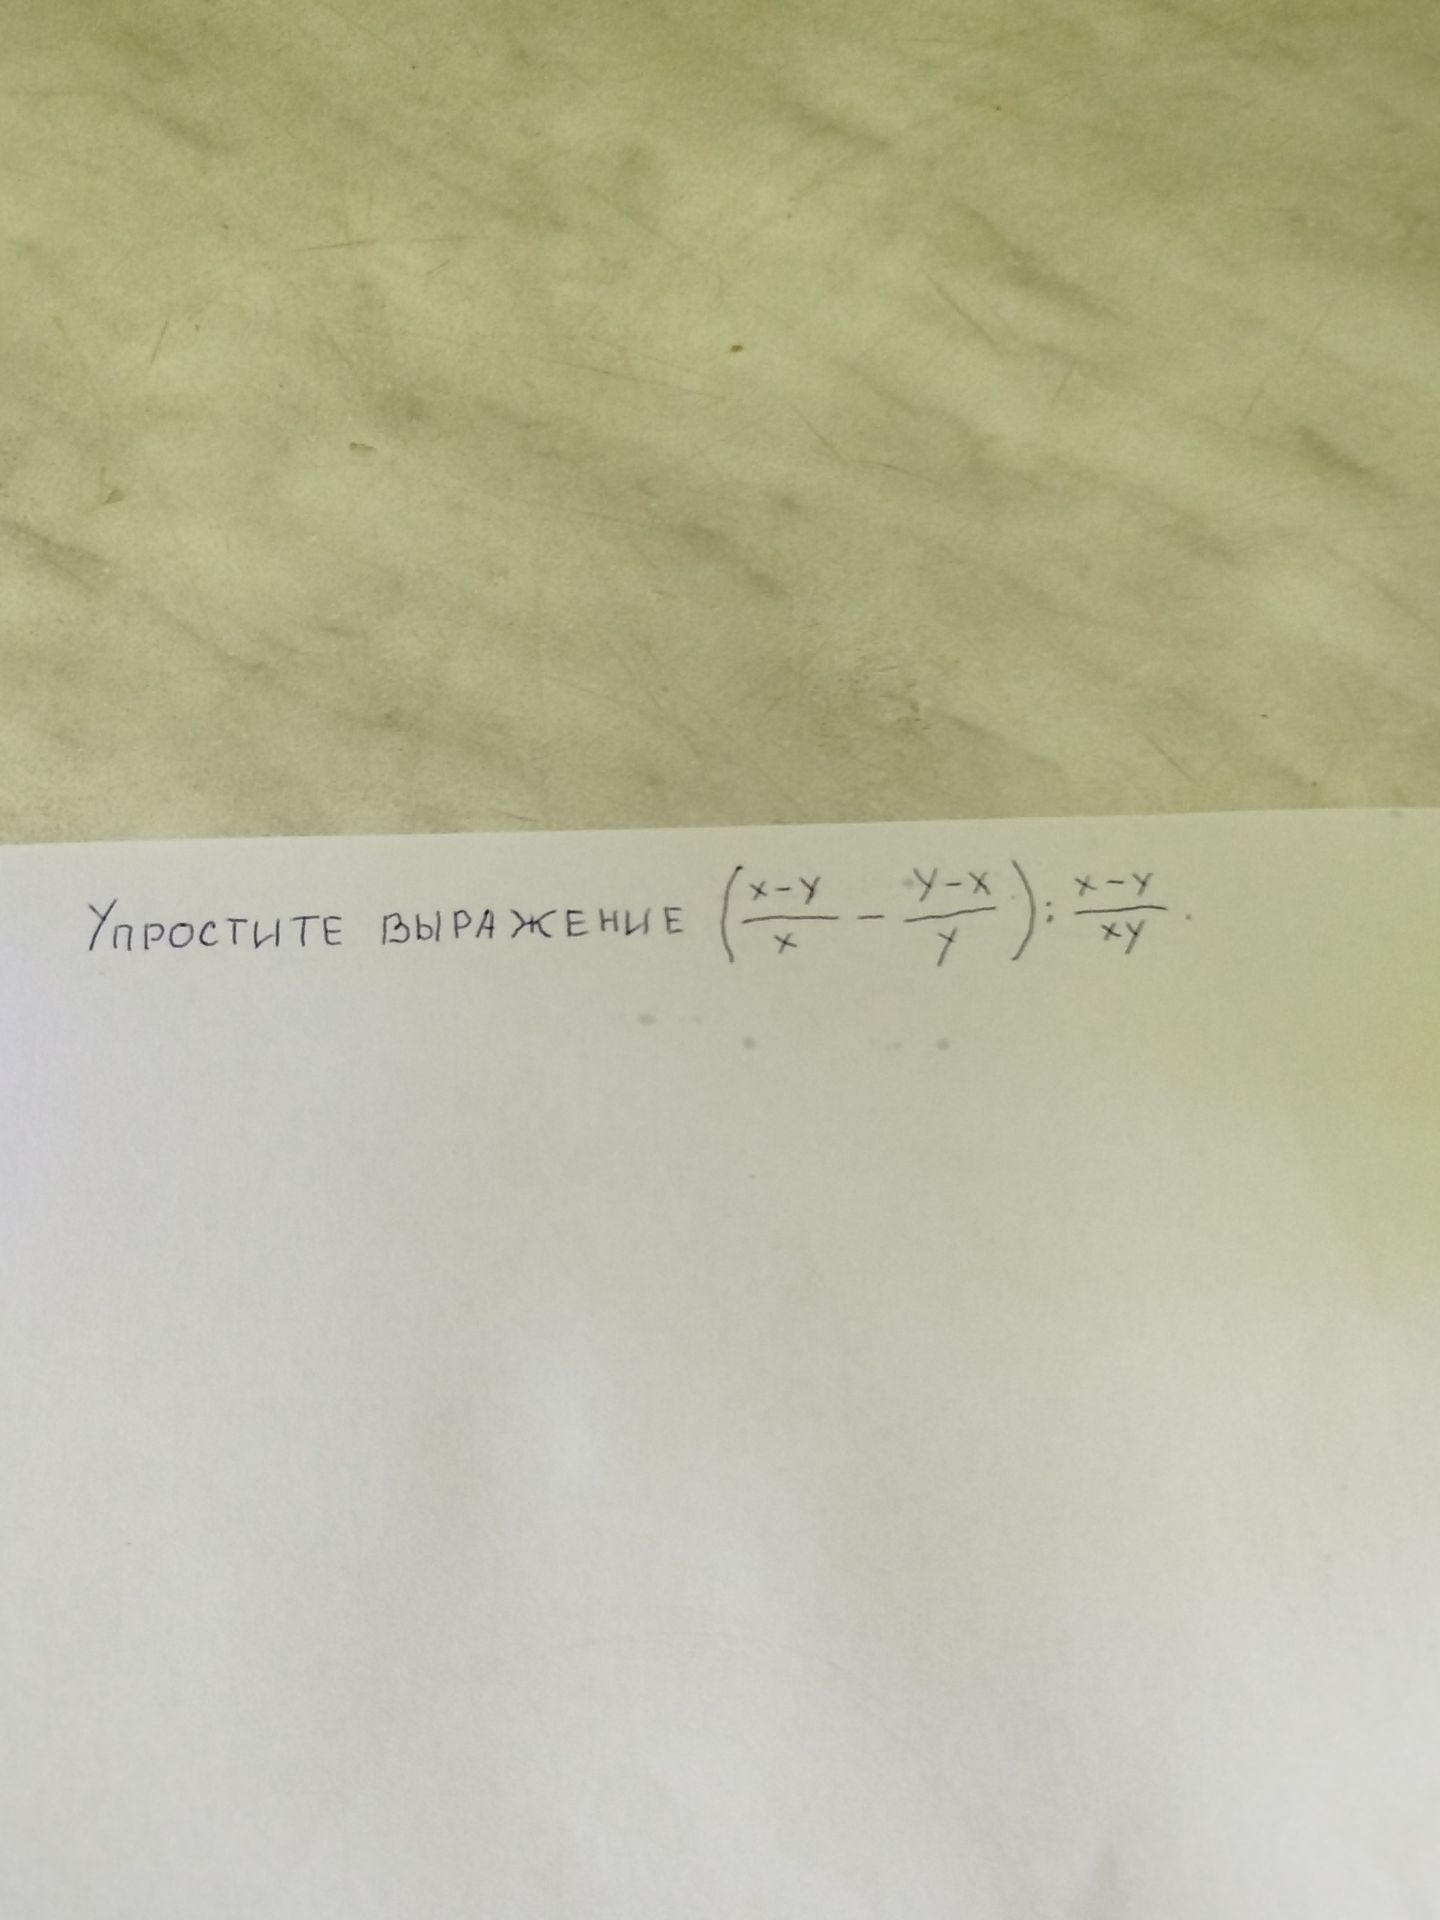 Упростите выражение $\left(\frac{x-y}{x} - \frac{y-x}{y}\right) : \frac{x-y}{xy}$.